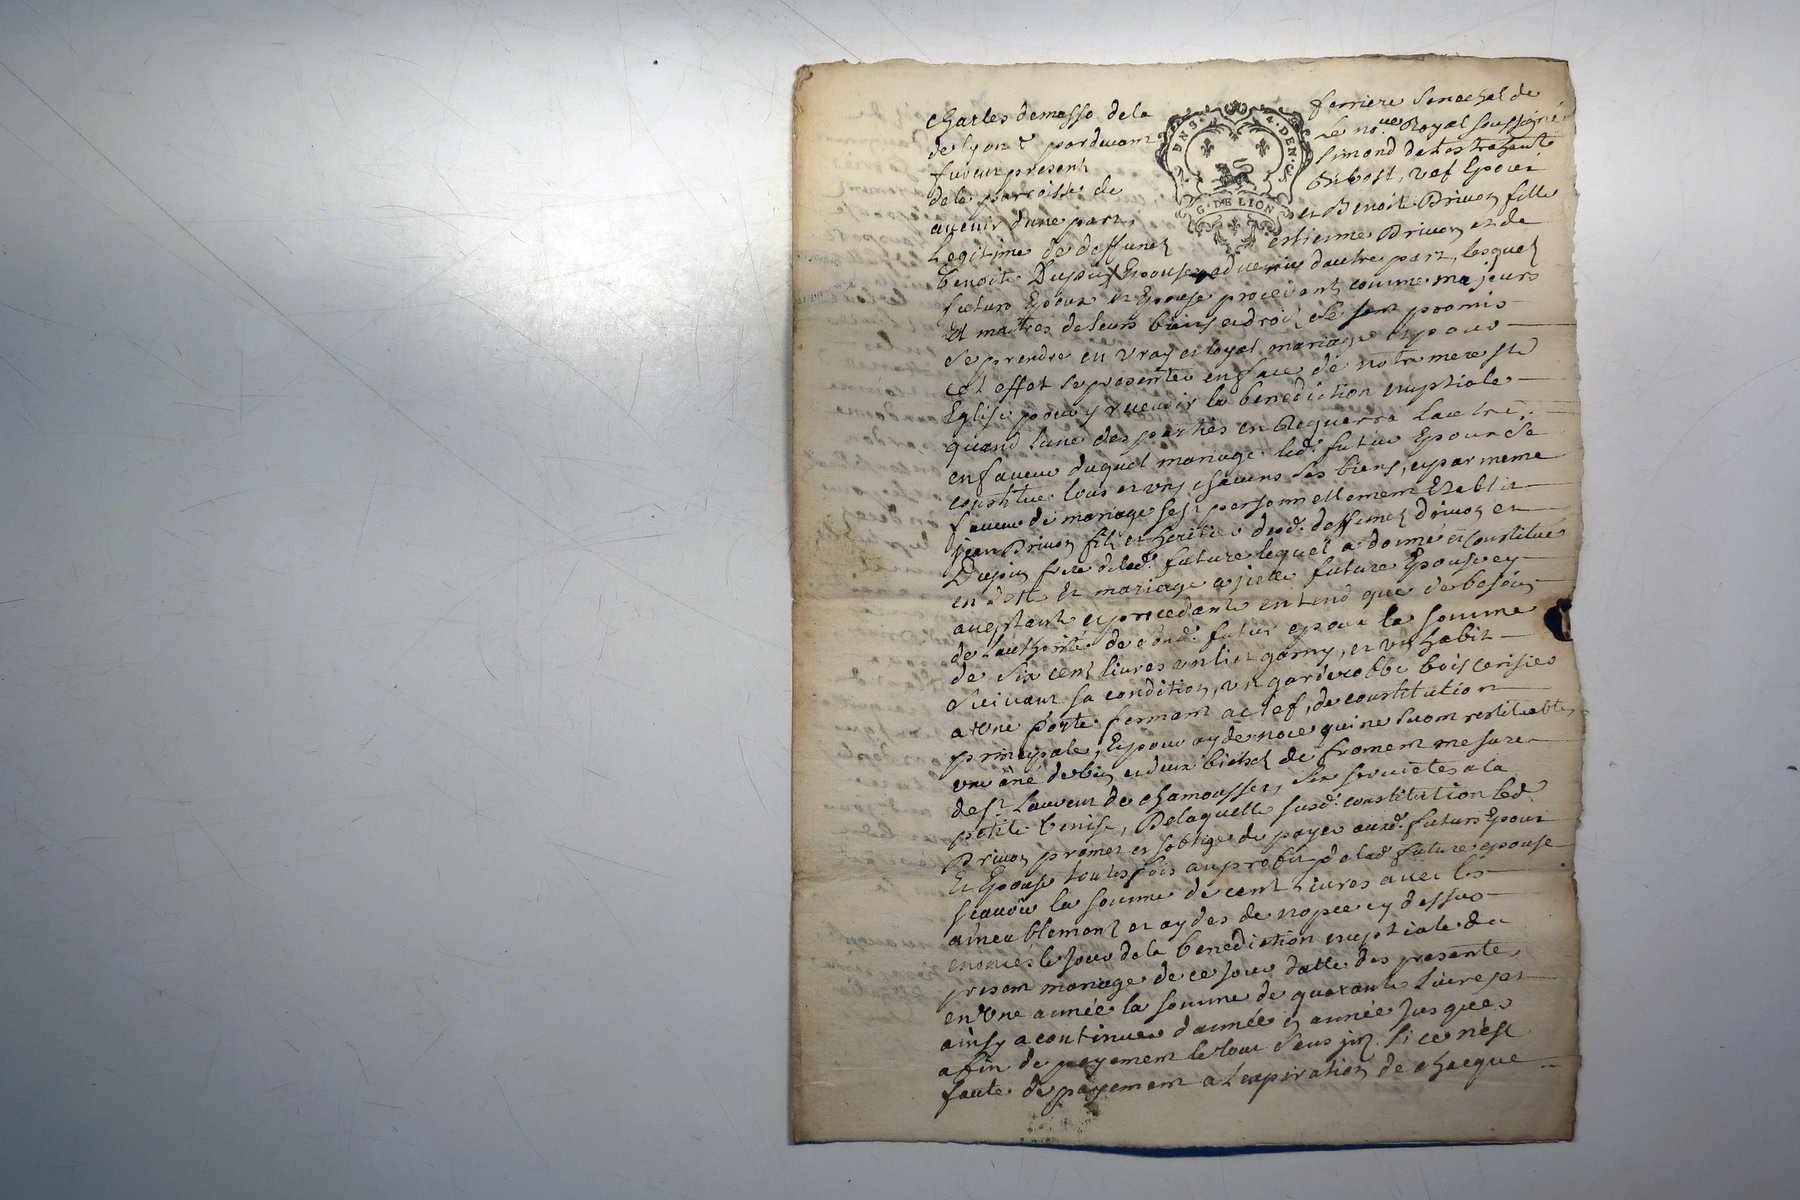 Charles demasso dela ferriere Senechal de
de lyon & pardevant Le no.re Royal soussigné
furent present Simond
dela parroisse de Bibost, vef Epoux
avenir d'une part, et Benoite Brivon fille
Legitime de deffunct estienne Brivon et de
benoite Dupin Epouse advenir dautre part, lesquels
futurs Epoux et Epouse procedant comme majeurs
Et maitres deleurs biens et droits Se sont promis
Se prendre en vray et loyal mariage et pour
cet effet Se presenter en face de notre mere Ste
Eglise pour y recevoir la benediction nuptiale
quand l'une des parties en Requerra Lautre;
enfaveur duquel mariage led. futur Epoux Se
constitue tous et uns chacuns ses biens, et par meme
faveur de mariage sest personnellement Etably
jean Brivon fils et heritier desd. deffuncts Brivon et
Dupin frere de lad. future lequel a donné et constitué
en dot et mariage a jcelle future Epouse cy
acceptant et procedante entend que de besoin
de l'authorité de sond. futur epoux la somme
de Six cent livres un lict garny, et un habit
Suivant sa condition, un garderobbe bois cerisier
a une porte fermant a clef, de constitution
principale, Et pour ayde noce qui ne seront restituables
une ané de vin et deux bichets de froment mesure
de St Lauvent de chamousset, Six serviettes a la
petite Venise, Delaquelle susd. constitution led.
Brivon promet et s'oblige de payer auxd. futurs Epoux
Et Epouse toutesfois au profit de lad. future epouse
scavoir la somme de cent livres avec les
ameublement et aydes de nopce cy dessus
enoncés le jour de la benediction nuptiale du
present mariage de ce jour datte des presente,
en Une année la somme de quarante livres et
ainsy a continuer d'année en année jusques
a fin de payement le tout Sans jnt. Si ce n'est
faute de payement a Lexpiration de chacque
DNS. 4. DEN.
G. DE LION